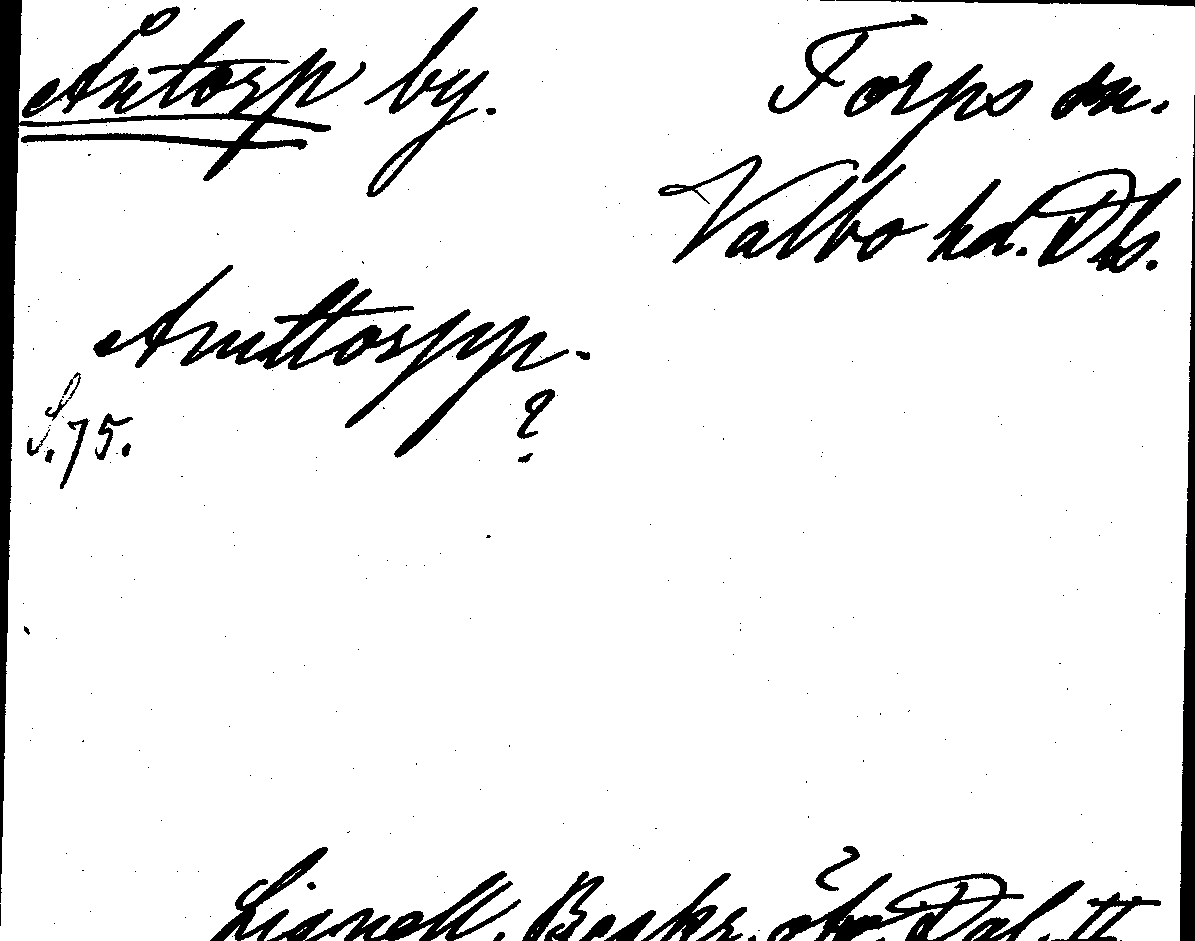 Åntorp by. Torps sn.
Valbo hd. Dls.
Anttorpp.
S. 75. ?
Lignell, Beskr. öfv. Dal. II